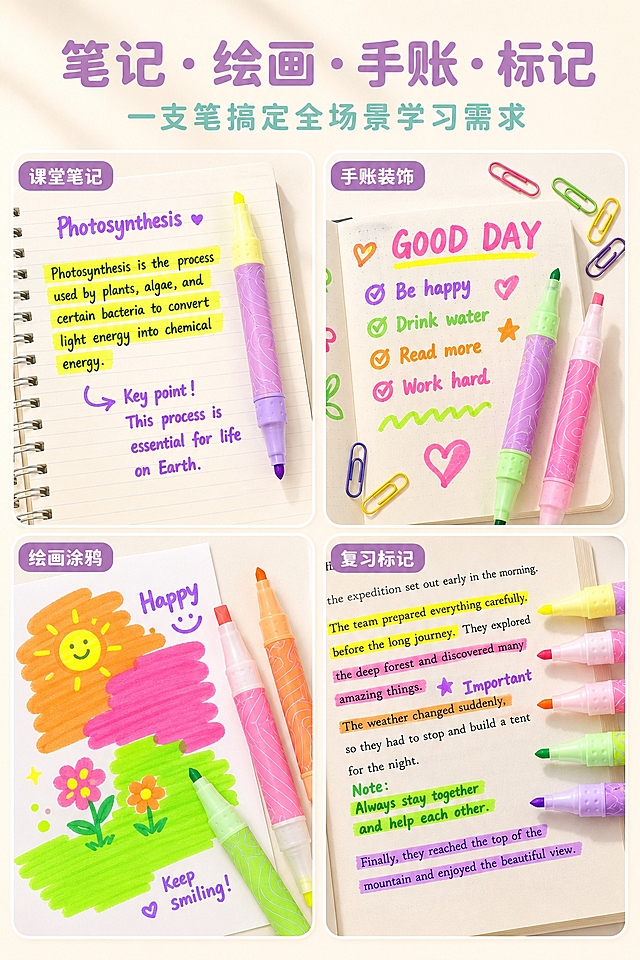 笔记·绘画·手账·标记
一支笔搞定全场景学习需求
课堂笔记
Photosynthesis
Photosynthesis is the process
used by plants, algae, and
certain bacteria to convert
light energy into chemical
energy.
Key point!
This process is
essential for life
on Earth.
手账装饰
GOOD DAY
Be happy
Drink water
Read more
Work hard
绘画涂鸦
Happy
Keep
smiling!
复习标记
the expedition set out early in the morning.
The team prepared everything carefully.
before the long journey. They explored
the deep forest and discovered many
amazing things.
Important
The weather changed suddenly,
so they had to stop and build a tent
for the night.
Note:
Always stay together
and help each other.
Finally, they reached the top of the
mountain and enjoyed the beautiful view.